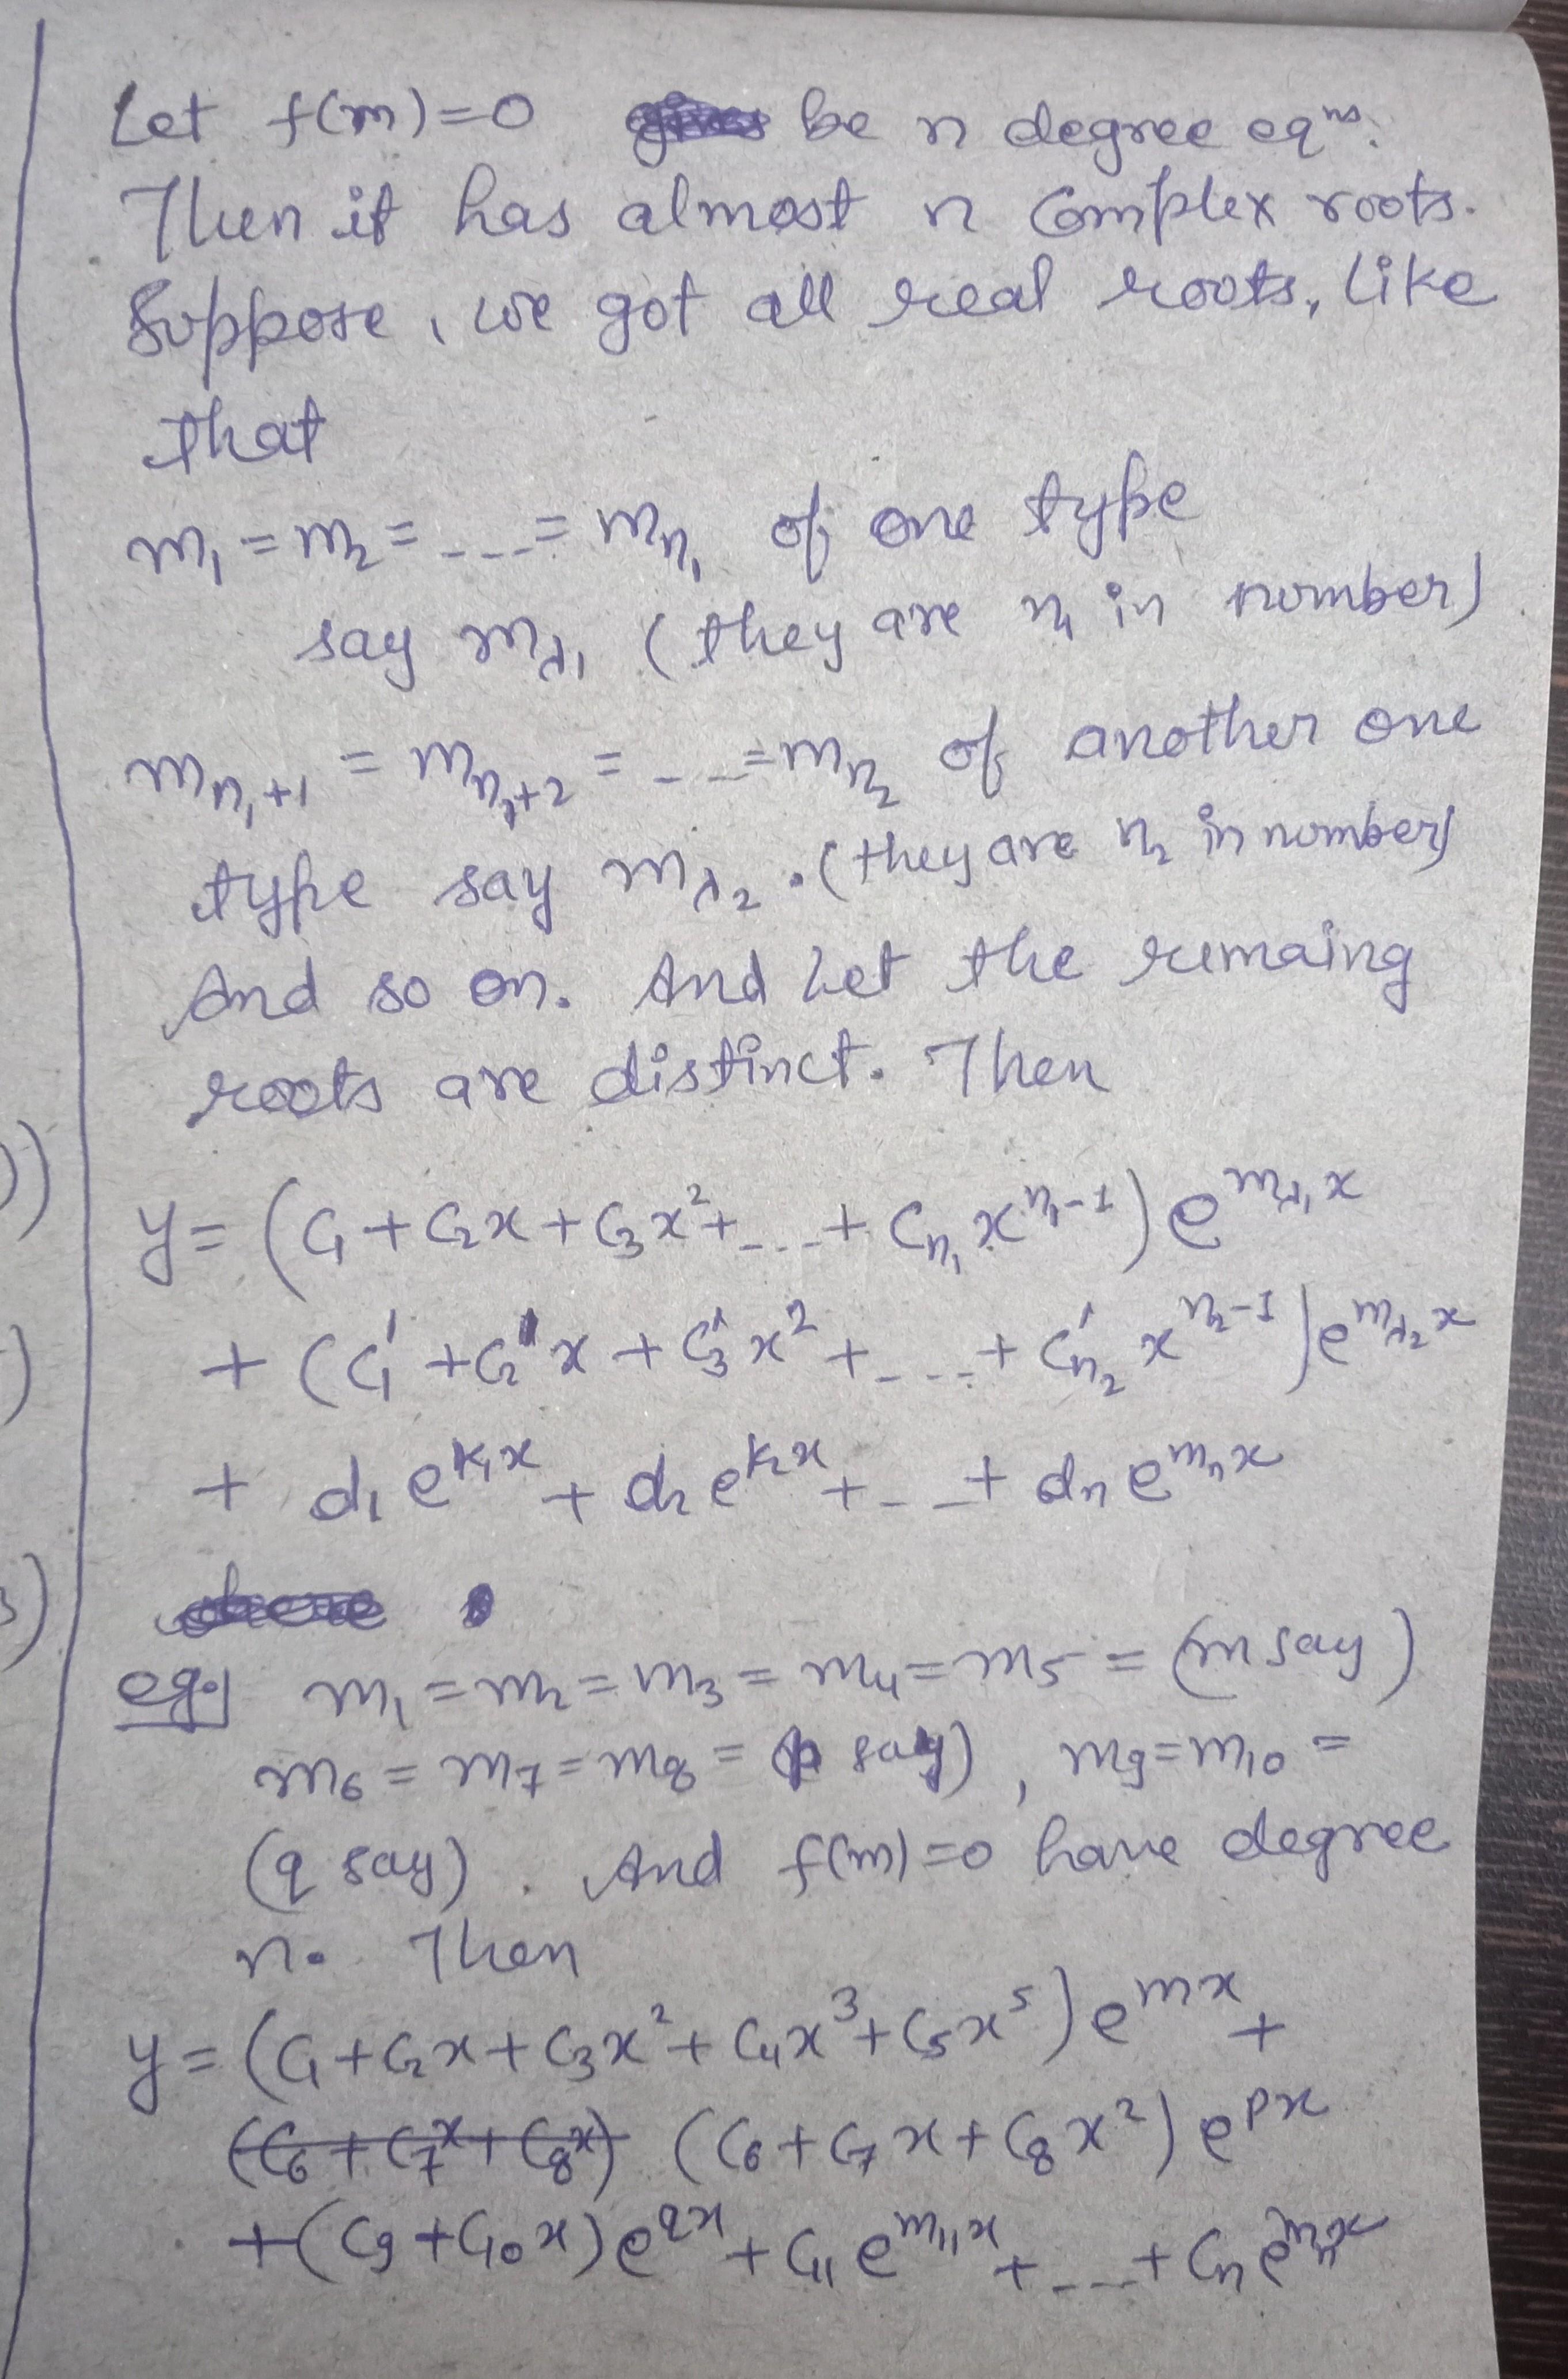 Let f(m)=0 be n degree eqⁿˢ.
Then it has almost n Complex roots.
Suppose, we got all real roots, like
that
m₁ = m₂ = ---= m_{n₁} of one type
say m_{λ₁} (they are n₁ in number)
m_{n₁+1} = m_{n₁+2} = - -=m_{n₂} of another one
type say m_{λ₂}. (they are n₂ in number)
And so on. And Let the remaing
roots are distinct. Then
y= (C₁+C₂x+C₃x²+---+ C_{n₁} x^{n₁-1}) e^{m_{λ₁}x}
+ (C₁' +C₂'x + C₃'x² +---+ C'_{n₂} x^{n₂-1}) e^{m_{λ₂}x}
+ d₁ e^{k₁x} + d₂ e^{k₂x} +- -+ dₙ e^{mₙx}
eg. m₁=m₂=m₃=m₄=m₅= (m say)
m₆=m₇=m₈= (p say), m₉=m₁₀ =
(q say). And f(m)=0 have degree
n. Then
y=(C₁+C₂x+C₃x²+C₄x³+C₅x⁵)e^{mx}+
(C₆+C₇x+C₈x) (C₆+C₇x+C₈x²) e^{px}
+(C₉+C₁₀x)e^{qx}+C₁₁e^{m₁₁x}+---+Cₙe^{mₙx}